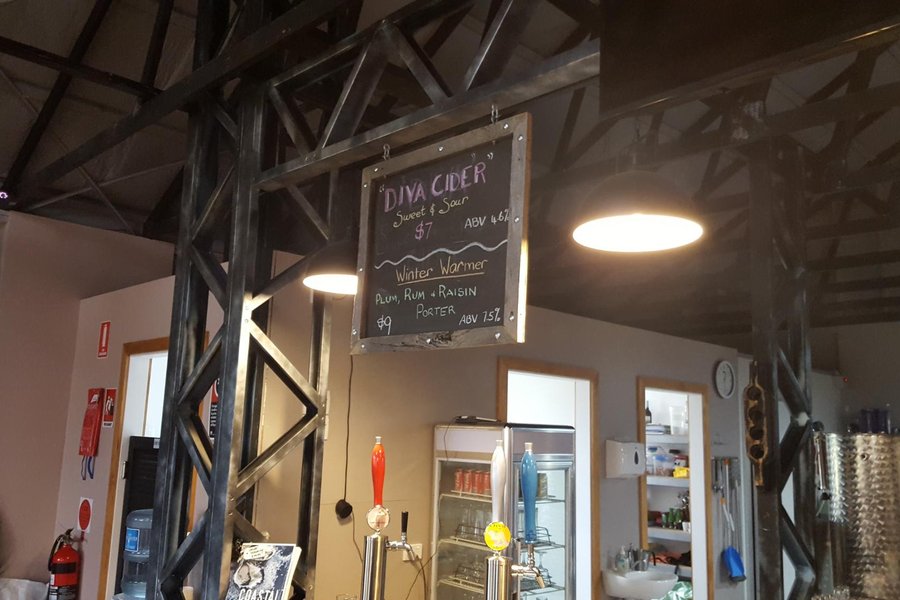 "DIVA CIDER"
Sweet & Sour
$7
ABV 4.6%
Winter Warmer
PLUM, RUM & RAISIN
PORTER
$9
ABV 7.5%
COASTAL